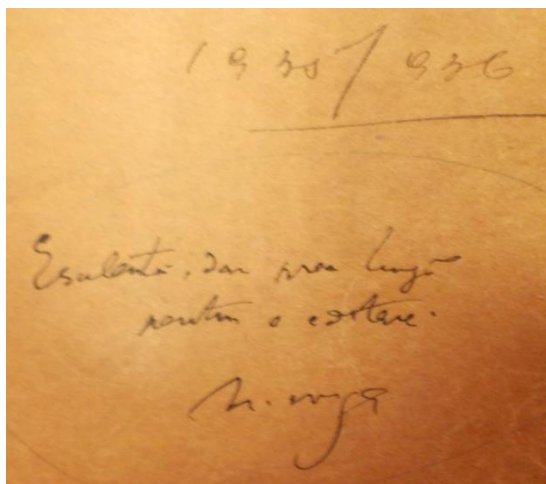 1935/936
Esalentă, dar prea lungă
pentru o editare.
N. Iorga